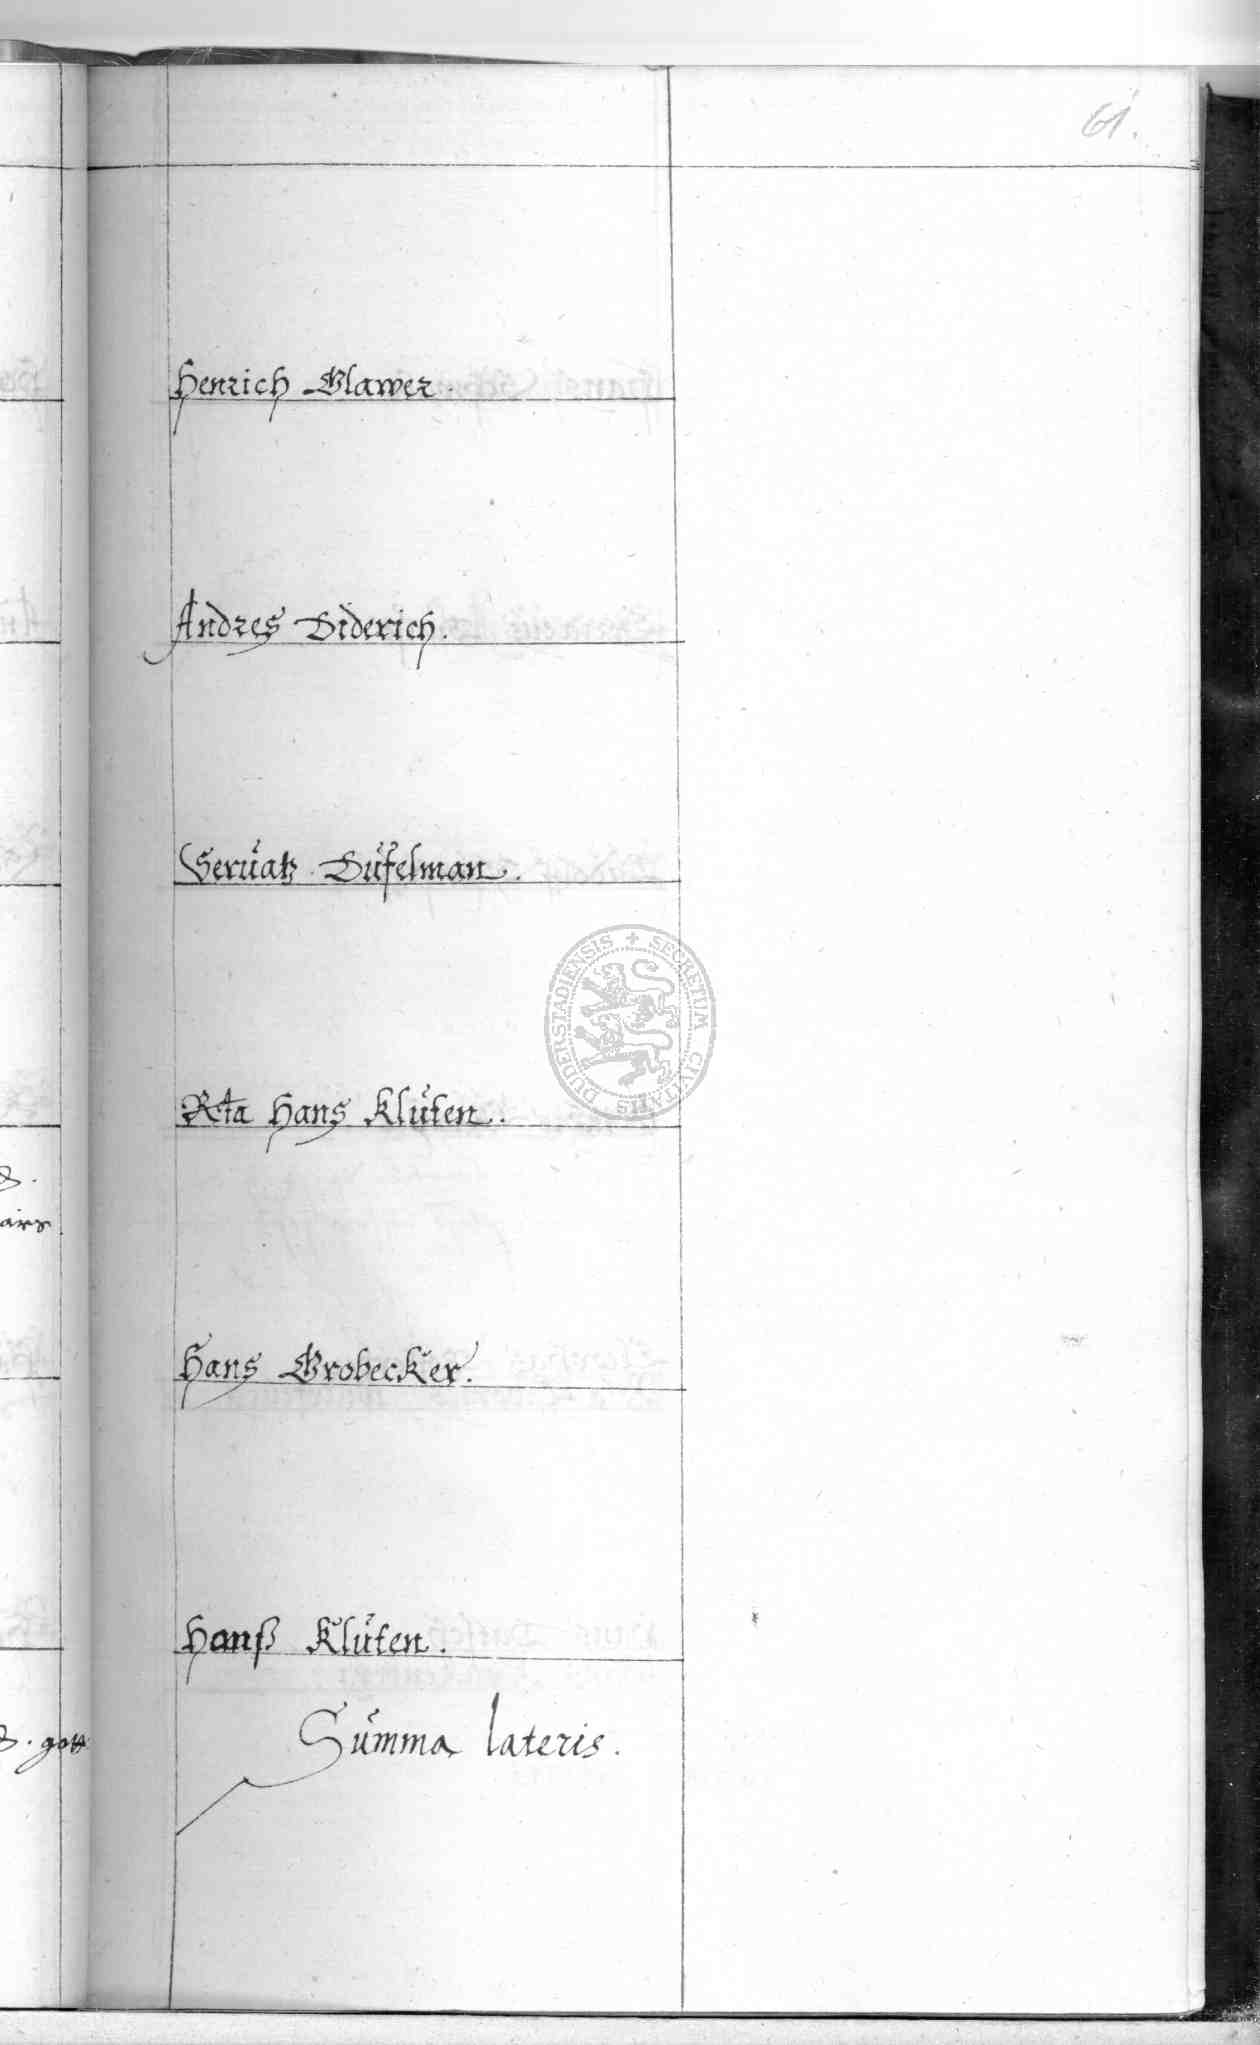 61.
Henrich Glawer.
Andres Diderich.
Seruatz Düfelman.
Rta Hans Klüfen.
Hans Grobecker.
Hanß Klüfen.
Summa lateris.
DUDERSTADIENSIS + SECRETUM CIVITATIS
gott